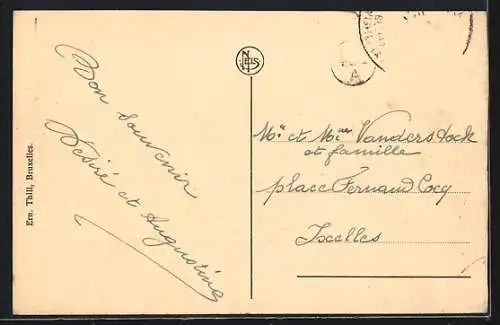 Bon souvenir
Désiré et Augustine
Mr et Mme Vanderstock
et famille
place Fernand Cocq
Ixelles
Ern. Thill, Bruxelles.
NELS
A